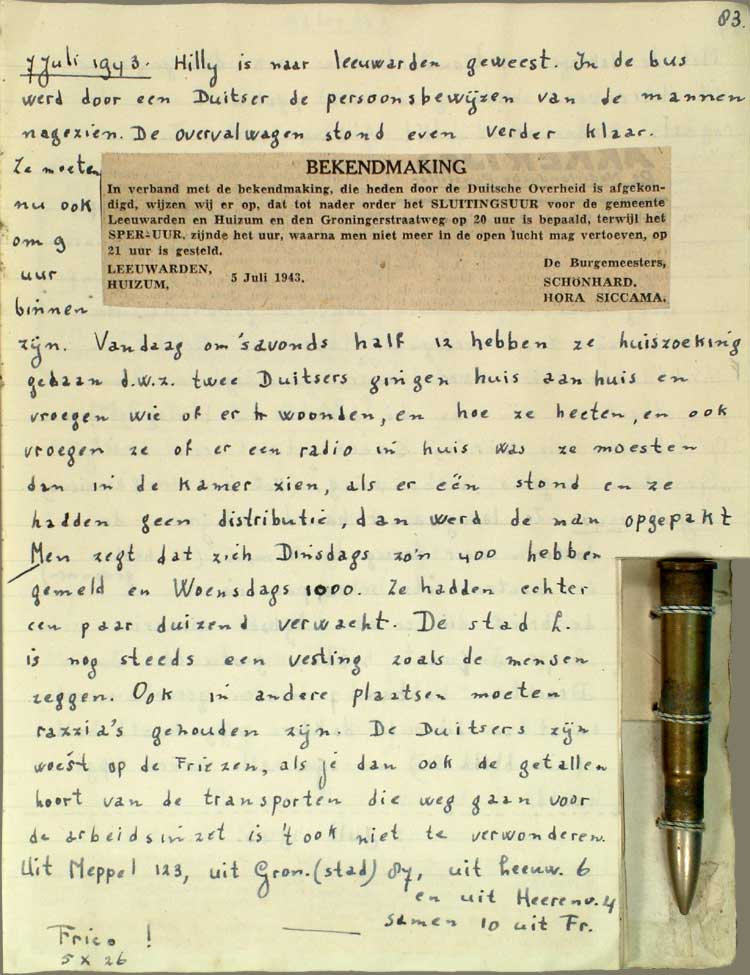 83.
7 Juli 1943. Hilly is naar leeuwarden geweest. In de bus
werd door een Duitser de persoonsbewijzen van de mannen
nagezien. De overvalwagen stond even verder klaar.
Ze moeten
nu ook
om 9
uur
binnen
BEKENDMAKING
In verband met de bekendmaking, die heden door de Duitsche Overheid is afgekon-
digd, wijzen wij er op, dat tot nader order het SLUITINGSUUR voor de gemeente
Leeuwarden en Huizum en den Groningerstraatweg op 20 uur is bepaald, terwijl het
SPER-UUR, zijnde het uur, waarna men niet meer in de open lucht mag vertoeven, op
21 uur is gesteld.
LEEUWARDEN,
HUIZUM,
5 Juli 1943.
De Burgemeesters,
SCHÖNHARD.
HORA SICCAMA.
zijn. Vandaag om 's avonds half 12 hebben ze huiszoeking
gedaan d.w.z. twee Duitsers gingen huis aan huis en
vroegen wie of er woonden, en hoe ze heeten, en ook
vroegen ze of er een radio in huis was ze moesten
dan in de kamer zien, als er eën stond en ze
hadden geen distributie, dan werd de man opgepakt
Men zegt dat zich Dinsdags zo'n 400 hebben
gemeld en Woensdags 1000. Ze hadden echter
een paar duizend verwacht. De stad L.
is nog steeds een vesting zoals de mensen
zeggen. Ook in andere plaatsen moeten
razzia's gehouden zijn. De Duitsers zijn
woest op de Friezen, als je dan ook de getallen
hoort van de transporten die weg gaan voor
de arbeidsinzet is 't ook niet te verwonderen.
Uit Meppel 123, uit Gron. (stad) 87, uit Leeuw. 6
en uit Heerenv. 4
samen 10 uit Fr.
Frico !
5 x 26